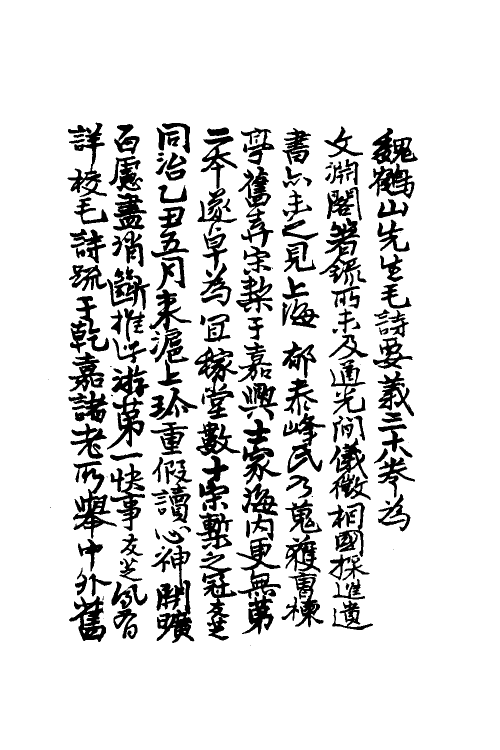 魏鶴山先生毛詩要義三十八卷為
文淵閣箸錄所未及道光間儀徵相國採進遺
書亦未之見上海郁泰峰氏乃蒐獲曹楝
亭舊弆宋槧于嘉興士家海内更無第
二本遂卓為宜稼堂數十宋槧之冠友芝
同治乙丑五月来滬上珎重假讀心神開曠
百慮盡消斷推此游第一快事友芝夙有
詳校毛詩疏于乾嘉諸老所舉中外舊